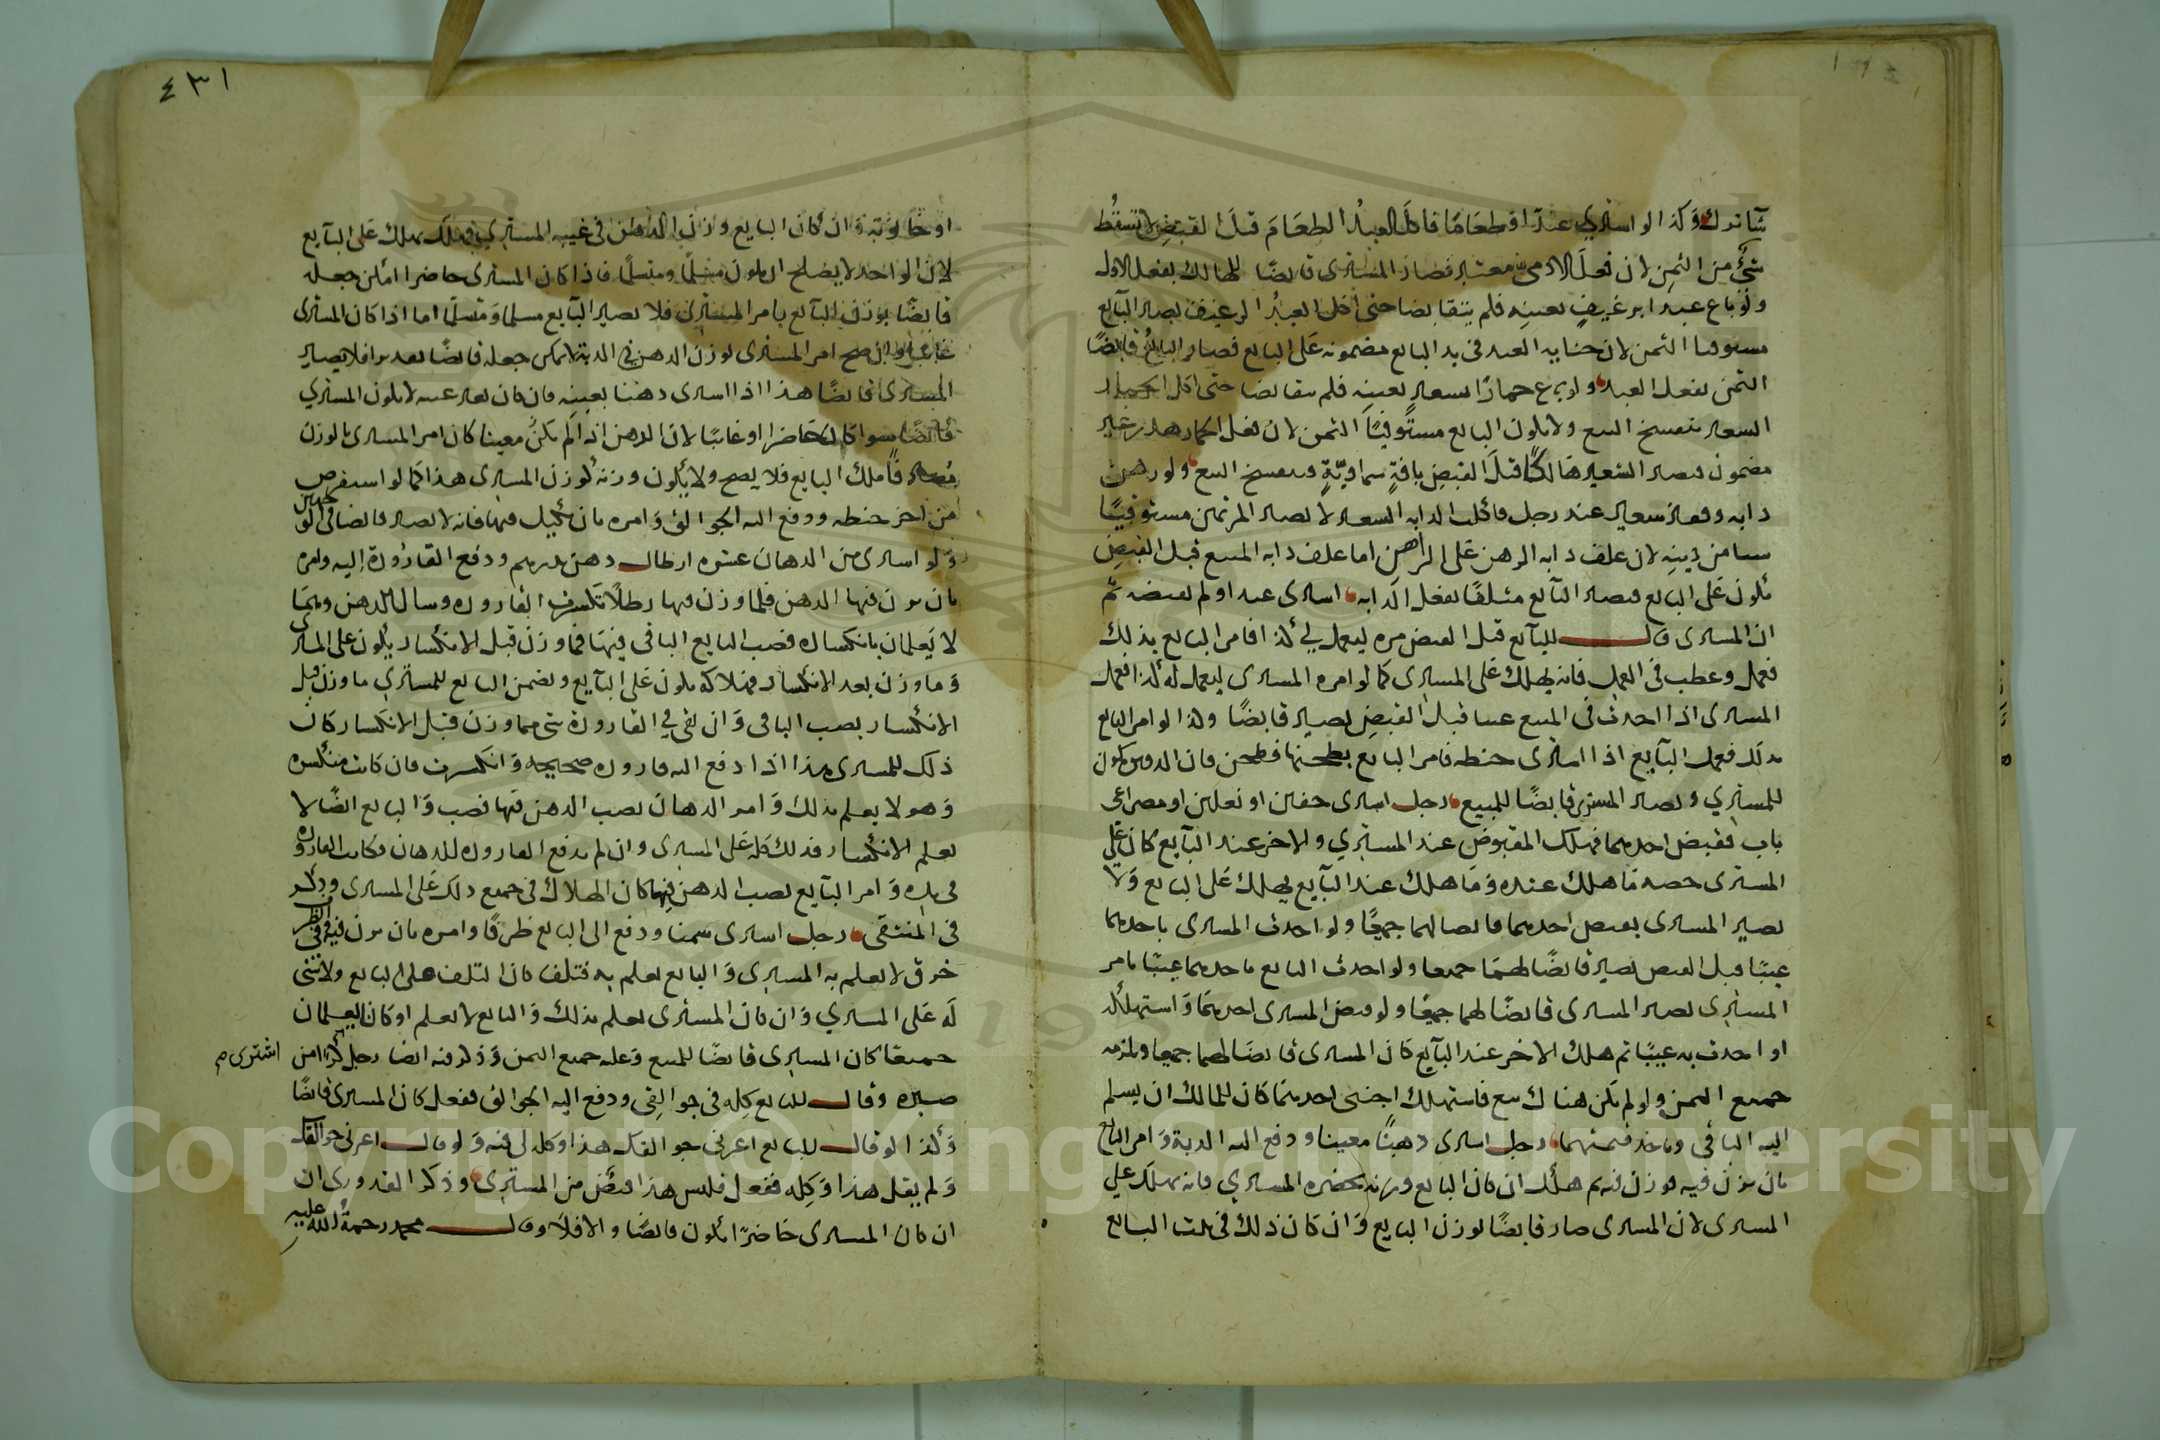 شا ترك وكذا لو اشتري عبدا وطعاما فاكل العبد الطعام قبل القبض لا تسقط
شئ من الثمن لان فعل الادمي معتبر فصار المشترى قابضا للهالك بفعل الاول
ولو باع عبدا برغيف بعينه فلم يتقابضا حتى اكل العبد الرغيف يصير البائع
مستوفيا الثمن لان جناية العبد فى يد البايع مضمونه على البايع فصار البائع قابضا
الثمن بفعل العبد ولو باع حمارا بشعير بعينه فلم يتقابضا حتى اكل الحمار
الشعير ينفسخ البيع ولا يكون البايع مستوفيا الثمن لان فعل الحمار هدر غير
مضمون فيصير الشعير هالكا قبل القبض بافة سماوية فينفسخ البيع ولو رهن
دابه وقفيز شعير عند رجل فاكلت الدابه الشعير لا يصير المرتهن مستوفيا
شيا من دينه لان علف دابه الرهن على الراهن اما علف دابه المبيع قبل القبض
يكون على البايع فيصير البائع متلفا بفعل الدابه اشترى عبدا ولم يقبضه ثم
ان المشترى قال للبائع قبل القبض مره ليعمل لي كذا فامر البايع بذلك
فعمل وعطب فى العمل فانه يهلك على المشترى كما لو امره المشترى ليعمل له كذا فعمل
المشترى اذا احدث فى المبيع عيبا قبل القبض يصير قابضا وكذا لو امر البايع
بذلك فعمل البائع اذا اشترى حنطه فامر البايع بطحنها فطحن فان الدقيق يكون
للمشتري ويصير المشترى قابضا للمبيع رجل اشترى خفين او نعلين او مصراعى
باب فقبض احدهما فهلك المقبوض عند المشتري والاخر عند البائع كان على
المشترى حصه ما هلك عنده وما هلك عند البائع يهلك على البايع ولا
يصير المشترى بقبض احدهما قابضا لهما جميعا ولو احدث المشترى باحدهما
عيبا قبل القبض يصير قابضا لهما جميعا ولو احدث البايع باحدهما عيبا بامر
المشتري يصير المشترى قابضا لهما جميعا ولو قبض المشترى احدهما واستهلكه
او احدث به عيبا ثم هلك الاخر عند البائع كان المشترى قابضا لهما جميعا ويلزمه
جميع الثمن ولو لم يكن هناك بيع فاستهلك اجنبى احدهما كان للمالك ان يسلم
اليه الباقى وياخذ قيمتهما رجل اشترى دهنا معينا ودفع اليه الدبة وامر البايع
بان يزن فيه فوزن فيه ثم هلك ان كان البايع وزنه بحضره المشتري فانه يهلك على
المشترى لان المشترى صار قابضا لوزن البايع وان كان ذلك فى بيت البايع
٤٣١
او حانوته وان كان البايع وزن الدهن فى غيبه المشترى فهلك يهلك على البائع
لان الواحد لا يصلح ان يكون مسلما ومتسلما فاذا كان المشترى حاضرا امكن جعله
قابضا بوزن البائع بامر المشترى فلا يصير البائع مسلما ومتسلما اما اذا كان المشترى
غايبا وان صح امر المشترى بوزن الدهن فى الدبة لا يمكن جعله قابضا بعد فلا يصير
المشترى قابضا هذا اذا اشترى دهنا بعينه فان كان بغير عينه لا يكون المشتري
قابضا سوا كان حاضرا او غايبا لان الدهن اذا لم يكن معينا كان امر المشترى بالوزن
ملك البايع فلا يصح ولا يكون وزنه كوزن المشترى هذا كما لو استقرض
من اخر حنطه ودفع اليه الجوالق وامره بان يكيل فيها فانه لا يصير قابضا فى الجوالق
ولو اشترى من الدهان عشره ارطال دهن بدرهم ودفع القارورة اليه وامره
بان يزن فيها الدهن فلما وزن فيها رطلا انكسرت القاروره وسال الدهن وهما
لا يعلمان بانكساره فصب البايع الباقى فيها فما وزن قبل الانكسار يكون على المشترى
وما وزن بعد الانكسار فهلاكه يكون على البائع ويضمن البايع للمشتري ما وزن قبل
الانكسار بصب الباقى وان بقى في القارورة شى مما وزن قبل الانكسار كان
ذلك للمشترى هذا اذا دفع اليه قاروره صحيحه وانكسرت فان كانت منكسره
وهو لا يعلم بذلك وامر الدهان بصب الدهن فيها فصب والبايع ايضا لا
يعلم الانكسار فذلك كله على المشترى وان لم يدفع القاروره للدهان وكانت القاروره
فى يده وامر البائع بصب الدهن فيها كان الهلاك فى جميع ذلك على المشترى وذكر
فى المنتقى رجل اشترى سمنا ودفع الى البايع ظرفا وامره بان يزن فيه وفى الظرف
خرق لا يعلم به المشترى والبايع يعلم به فتلف كان التلف على البايع ولا شى
له على المشتري وان كان المشترى يعلم بذلك والبايع لا يعلم او كانا يعلمان
جميعا كان المشترى قابضا للمبيع وعليه جميع الثمن وذكر فيه ايضا رجل كرا من
اشترى م
صبره وقال للبايع كله فى جوالقى ودفع اليه الجوالق ففعل كان المشترى قابضا
وكذا لو قال للبايع اعرنى جوالقك هذا وكله لى فيه ولو قال اعرنى جوالقك
ولم يقل هذا وكله ففعل فليس هذا بقبض من المشتري وذكر القدورى ان
ان كان المشترى حاضرا يكون قابضا والا فلا وقال محمد رحمة الله عليه